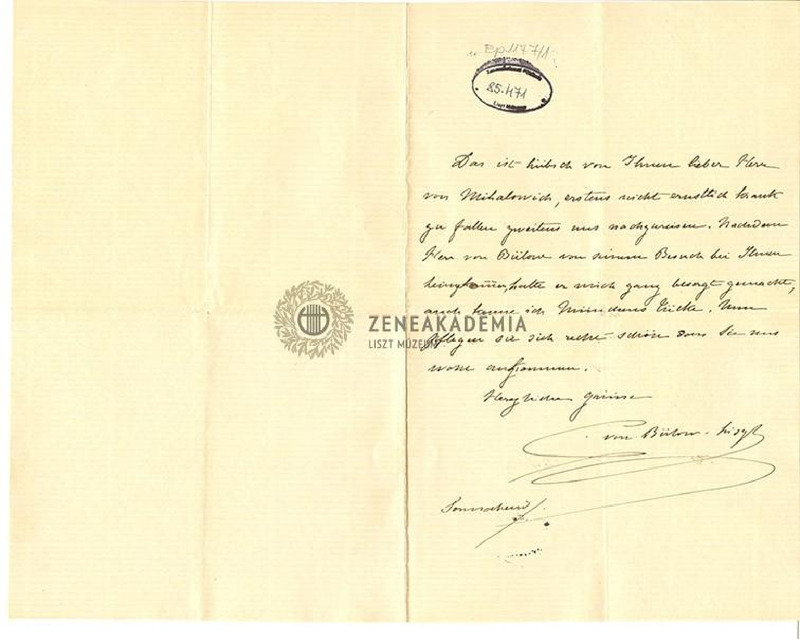 Ep. 1177/1
85.471
Liszt Múzeum
Das ist hübsch von Ihnen lieber Herr
von Mihalowich, erstens nicht ernstlich krank
zu fallen zweitens uns nachzureisen. Nachdem
Herr von Bülow von seinem Besuch bei Ihnen
heimgekommen, hatte er mich ganz besorgt gemacht,
auch kenne ich Münchens Tücke. Nun
pflegen sie sich recht schön dass Sie uns
wohl ankommen.
Herzlichen Grüsse
von Bülow-Liszt
Sonnabend.
ZENEAKADÉMIA
LISZT MÚZEUM